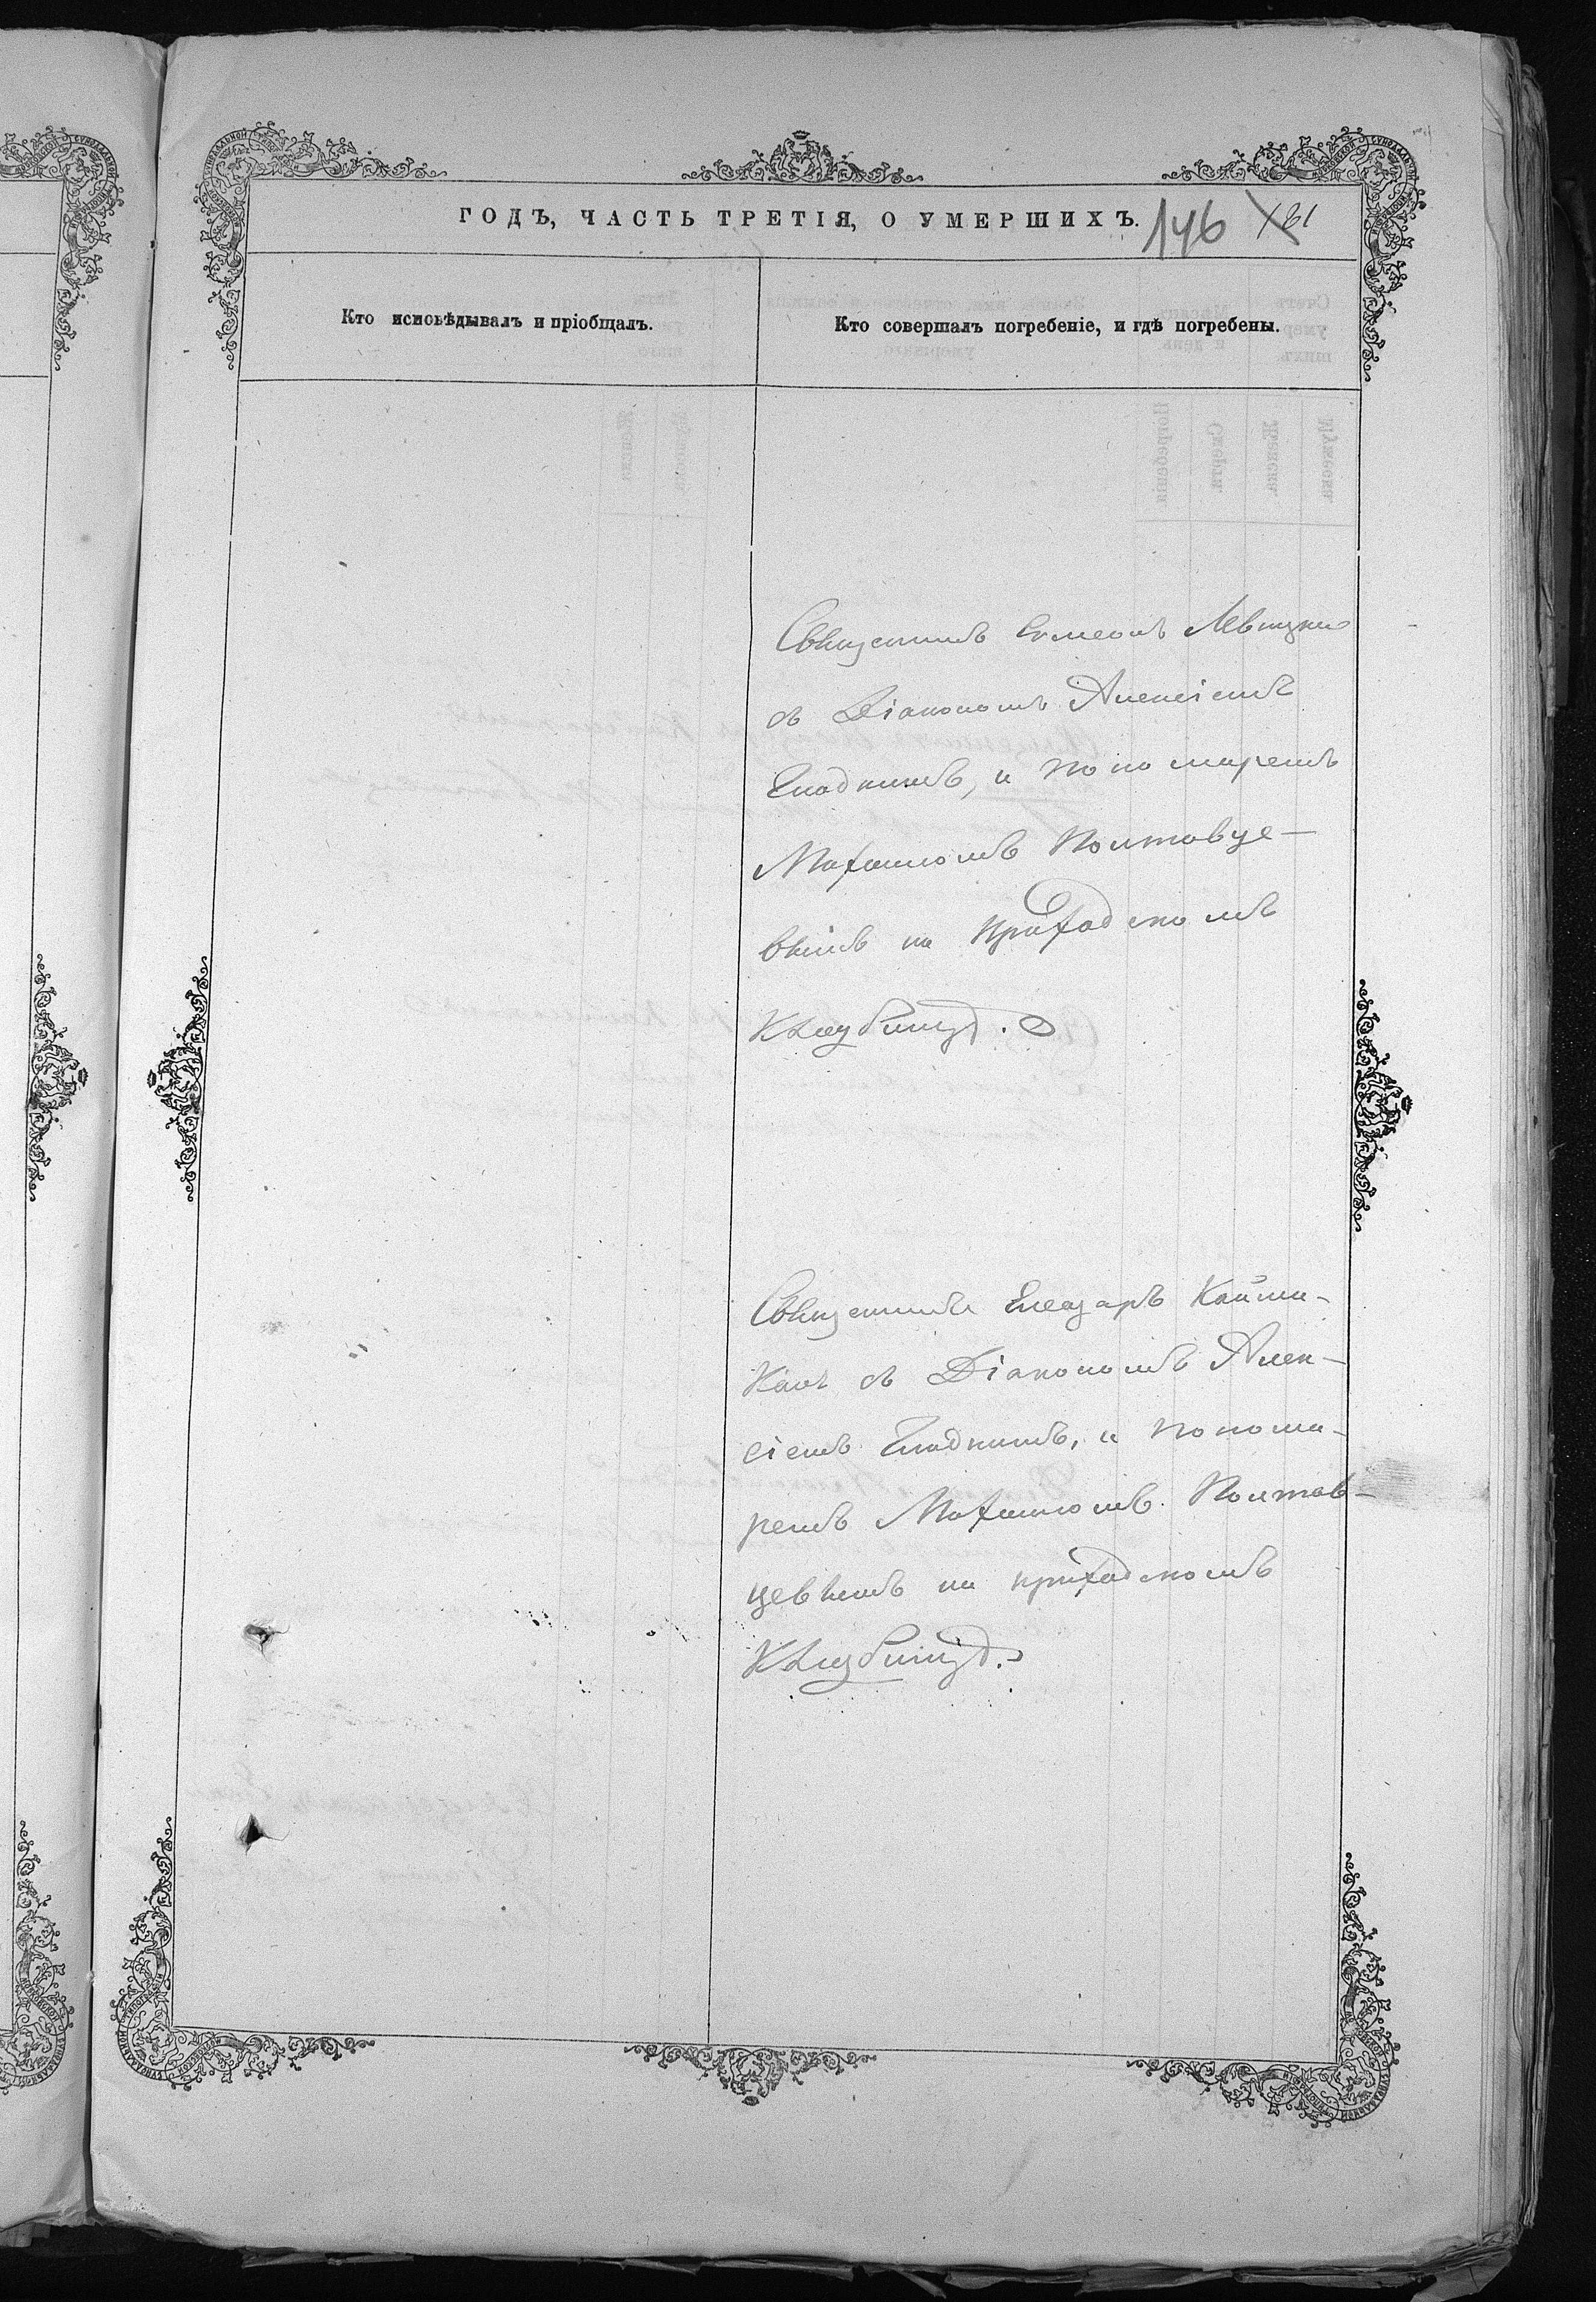 ГОДЪ, ЧАСТЬ ТРЕТІЯ, О УМЕРШИХЪ.
146 181
Кто исповѣдывалъ и пріобщалъ.
Кто совершалъ погребеніе, и гдѣ погребены.
Священникъ Симеонъ Левицкій
съ Діакономъ Алексіемъ
Гладкимъ, и пономаремъ
Мафтеемъ Полтавце-
вымъ на приходскомъ
кладбищѣ.
Священникъ Елеазаръ Кайта-
канъ съ Діакономъ Алек-
сіемъ Гладкимъ, и понома-
ремъ Полтав-
цевымъ на приходскомъ
кладбищѣ.